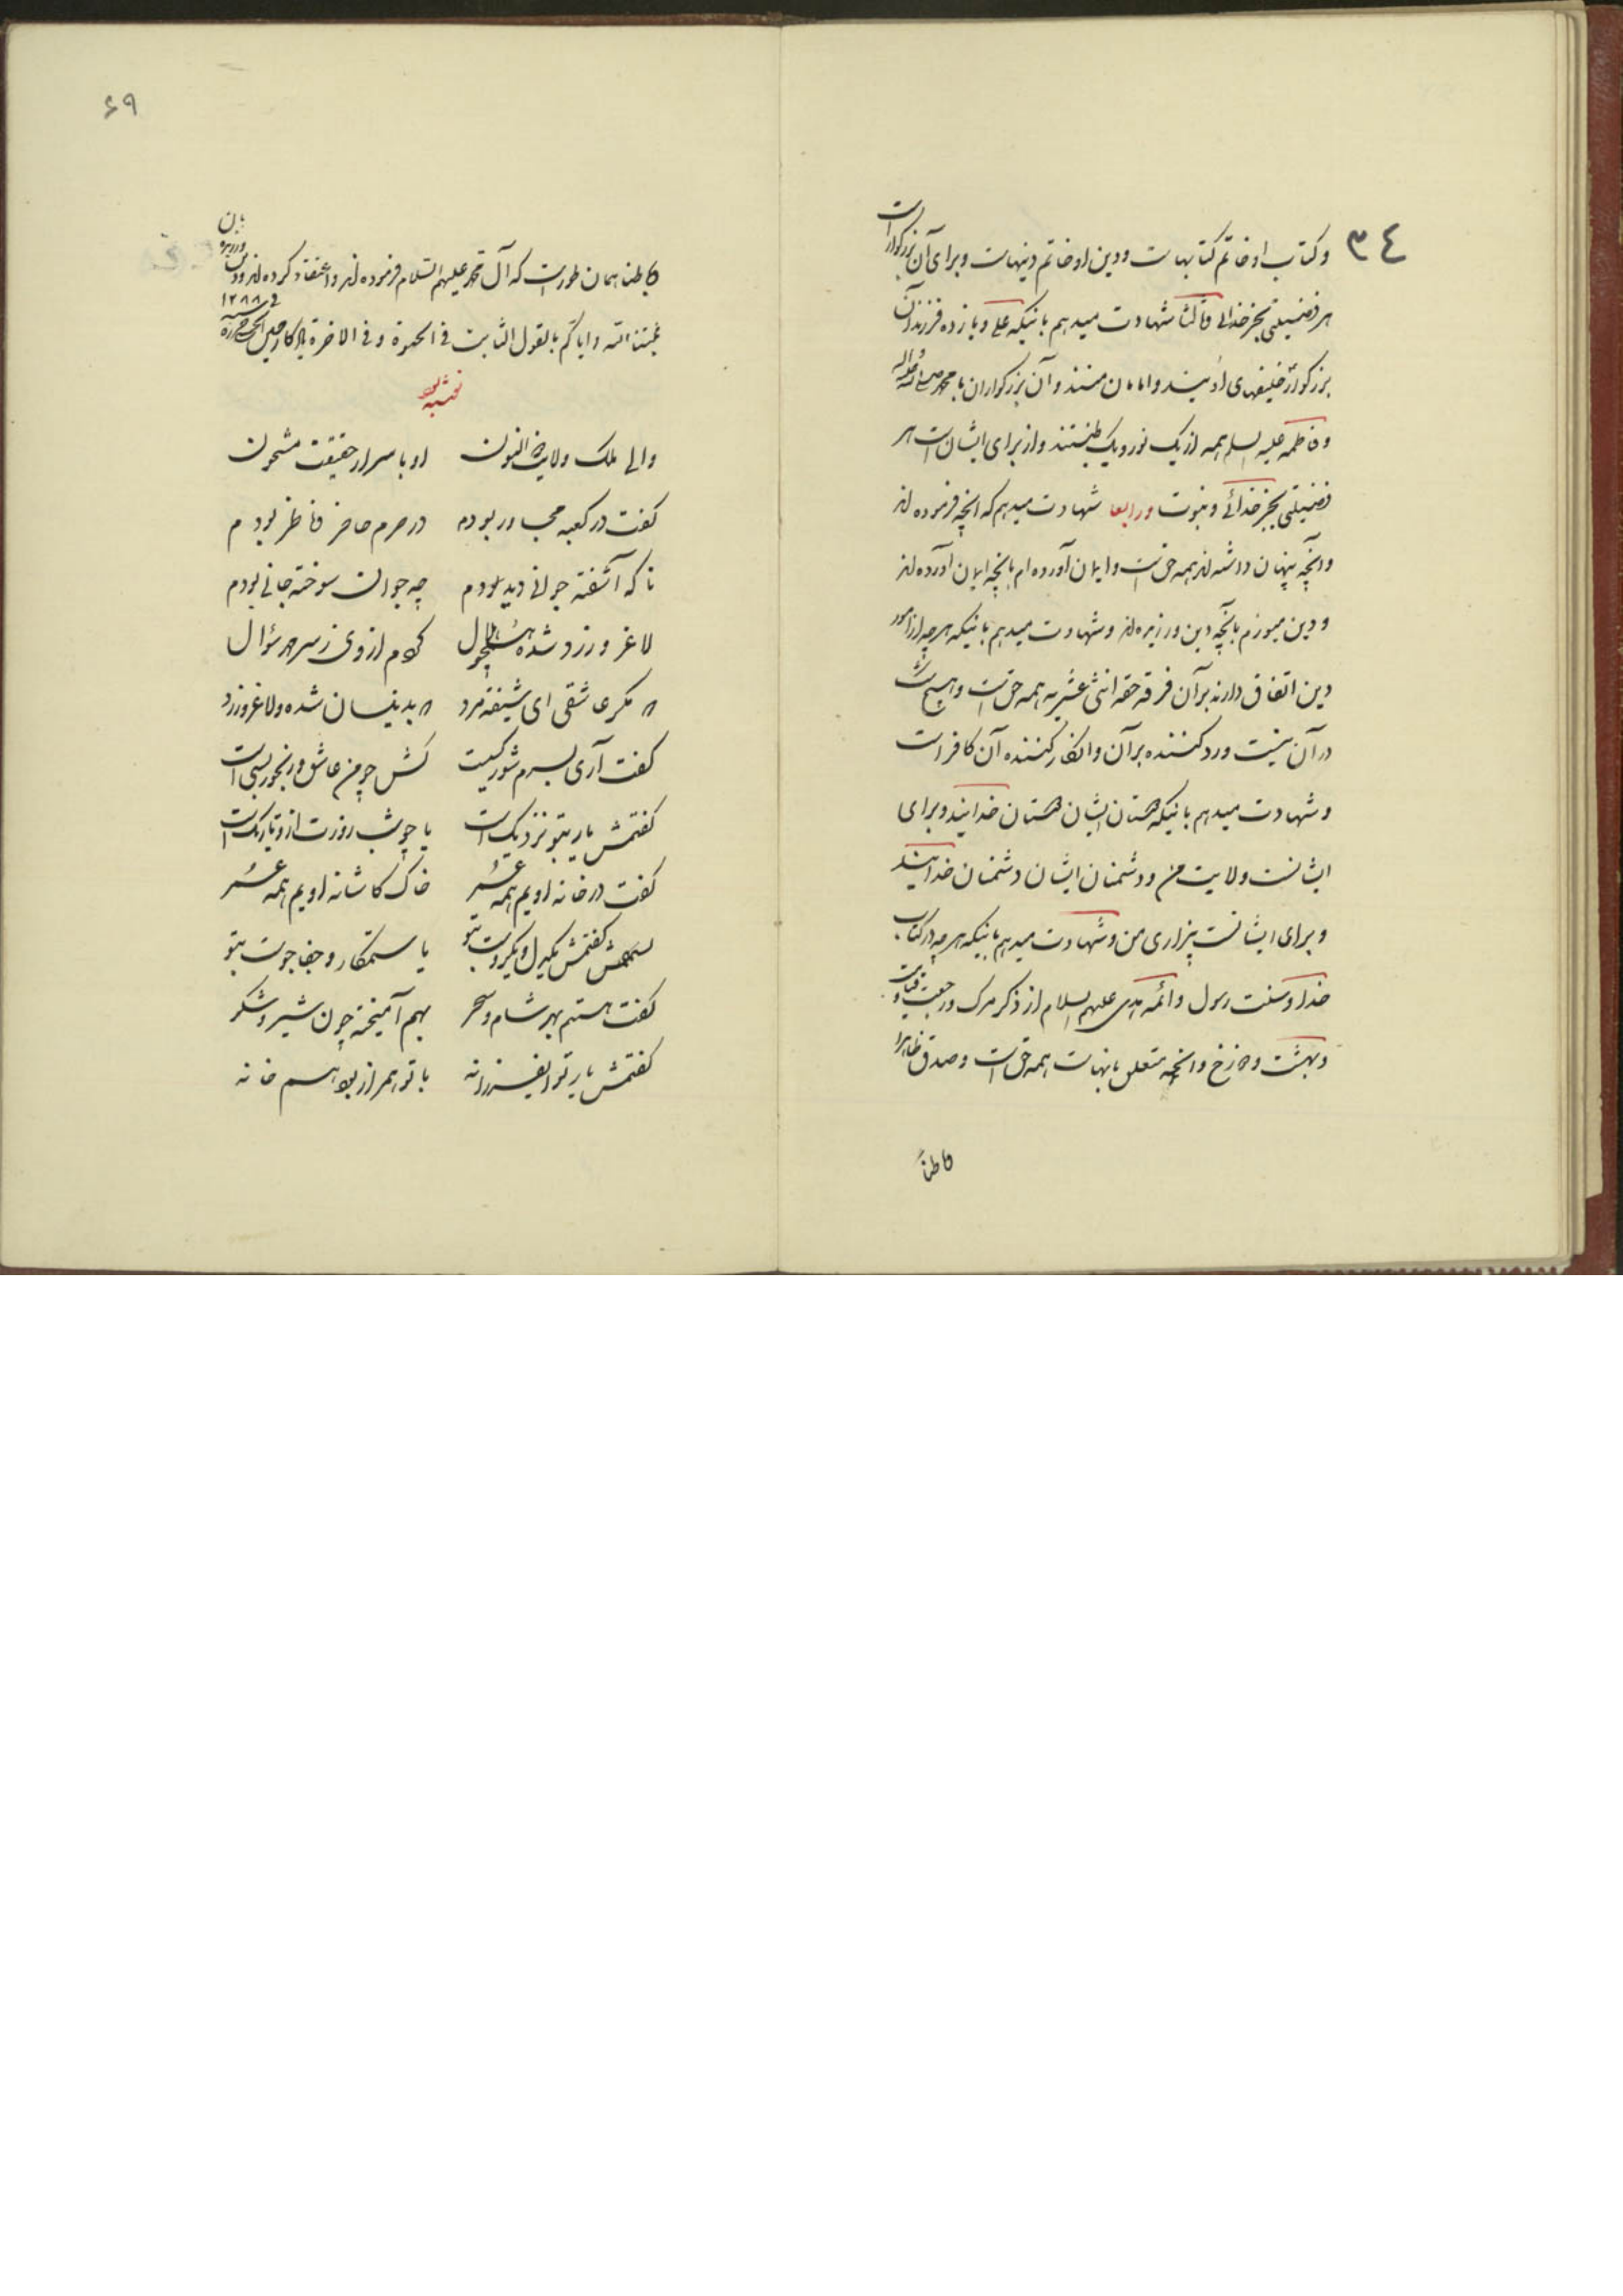 ٣٤
وکتاب او خاتم کتابهاست ودین او خاتم دینهاست وبرای آن بزرگوار است
هر فضیلتی بجز خدائی وثالثا شهادت میدهم باینکه علی ویازده فرزند آن
بزرگوار خلیفهای اویند وامامان منند وآن بزرگواران با محمد صلی الله علیه وآله
وفاطمه علیه السلم همه از یک نور ویک طینتند واز برای ایشان است هر
فضیلتی بجز خدائی ونبوت ورابعا شهادت میدهم که انچه فرموده اند
وانچه پنهان داشته اند همه حق است وایمان آورده ام بانچه ایمان آورده اند
ودین میورزم بانچه دین ورزیده اند وشهادت میدهم باینکه هر چه از امور
دین اتفاق دارند بر آن فرقه حقه اثنی عشریه همه حق است وهیچ شک
در آن نیست ورد کننده بر آن وانکار کننده آن کافر است
وشهادت میدهم باینکه دوستان ایشان دوستان خدایند وبرای
ایشانست ولایت من ودشمنان ایشان دشمنان خدایند
وبرای ایشانست بیزاری من وشهادت میدهم باینکه هر چه در کتاب
خدا وسنت رسول وائمه هدی علیهم السلام از ذکر مرک ورجعت وقیامت
وبهشت ودوزخ وانچه متعلق بانهاست همه حق است وصدق ظاهرا
وباطناً
۶۹
وباطنا همان طور است که آل محمد علیهم السلام فرموده اند واعتقاد کرده اند ودین ورزیده بان
ثبتنا الله وایاکم بالقول الثابت فی الحیوة وفی الاخرة فی ۱۲۸۸
والی ملک ولایت ذوالنون او باسرار حقیقت مشحون
کفت در کعبه مجاور بودم در حرم حاضر وناظر بودم
ناکه آشفته جوانی دیدم چه جوان سوخته جانی بودم
لاغر وزرد شده همچو هلال کردم از وی ز سر مهر سؤال
که مکر عاشقی ای شیفته مرد که بدینسان شده ولاغر وزرد
کفت آری بسرم شور کسیست کش چو من عاشق ورنجور بسی است
کفتمش یار بتو نزدیک است یا چو شب روزت از او تاریک است
کفت در خانه اویم همه عمر خاک کاشانه اویم همه عمر
کفتمش یکدل ویکروست بتو یا ستمکار وجفا جوست بتو
کفت هستیم بهر شام وسحر بهم آمیخته چون شیر وشکر
کفتمش یار تو ای فرزانه با تو همراز بود هم خانه